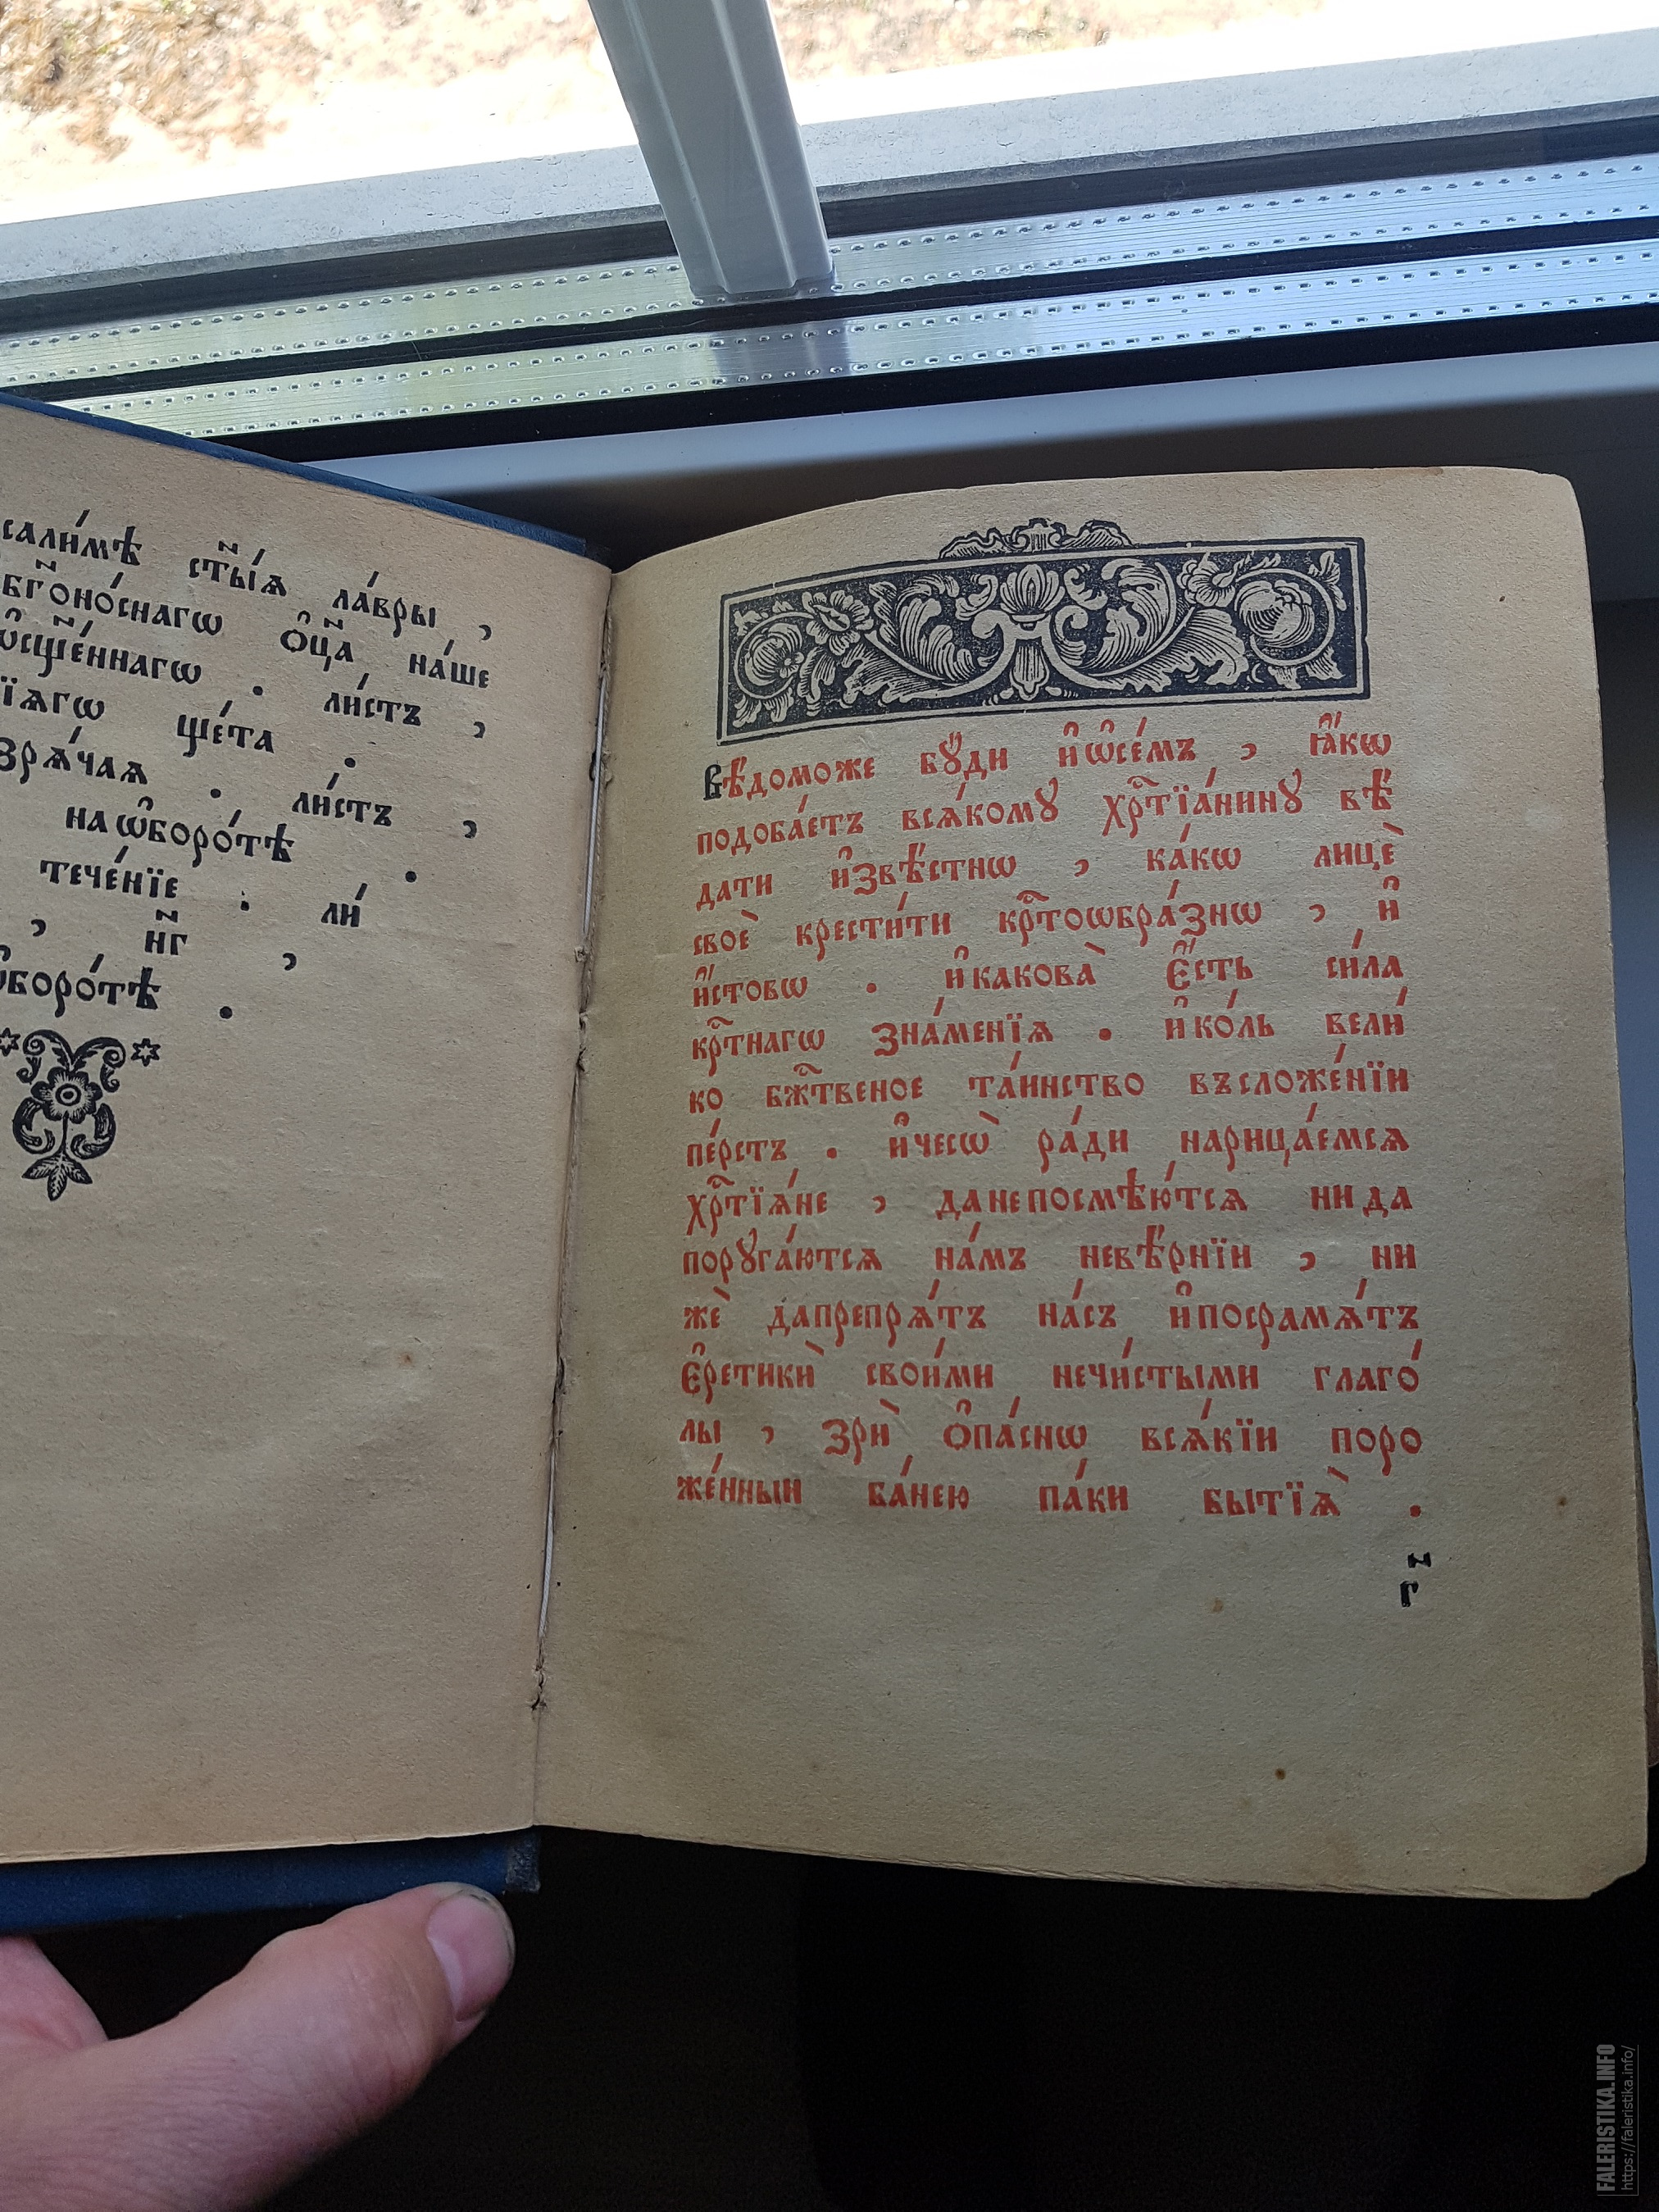 салі́мѣ ст҃ы́ѧ ла́вры ,
бг҃оно́снагѡ ѻ҆ц҃а на́ше
ѡ҆сщ҃е́ннагѡ . ли́стъ ,
їѧгѡ ще́та .
зрѧ́чаѧ . ли́стъ ,
на ѡ҆боро́тѣ .
тече́нїе . ли́
, н҃г ,
ѡ҆боро́тѣ .
Вѣ́доможе бꙋ́ди и҆ѡ҆се́мъ , ꙗ҆́кѡ
подоба́етъ всѧ́комꙋ хрⷭ҇тїа́нинꙋ вѣ́
дати и҆звѣ́стнѡ , ка́кѡ лицѐ
своѐ крести́ти крⷭ҇тоѡбра́знѡ , и҆
и҆́стовѡ . и҆какова̀ є҆́сть си́ла
крⷭ҇тнагѡ зна́менїѧ . и҆ко́ль вели́
ко бжⷭ҇твеное та́инство въсложе́нїи
пе́рстъ . и҆чесѡ̀ ра́ди нарица́емсѧ
хрⷭ҇тїѧ́не , данепосмѣю́тсѧ нида
порꙋга́ютсѧ на́мъ невѣ́рнїи , ни
жѐ дапрепрѧ́тъ на́съ и҆посрамѧ́тъ
є҆ретикѝ свои́ми нечи́стыми глаго́
лы , зрѝ ѻ҆па́снѡ всѧ́кїи поро
же́нныи ба́нею па́ки бытїѧ̀ .
г҃
FALERISTIKA.INFO
https://faleristika.info/